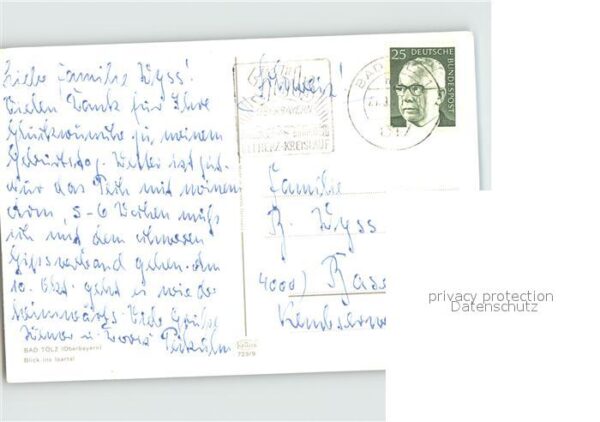 Liebe Familie Wyss!
Vielen Dank für Ihre
Glückwünsche zu meinem
Geburtstag. Wetter ist gut.
nur das Pech mit meinem
Arm, 5-6 Wochen muß
ich mit dem schweren
Gipsverband gehen. Am
10. Okt. geht es wieder
heimwärts. Viele Grüße
BAD TÖLZ (Oberbayern)
Blick ins Isartal
729/9
HERZ-KREISLAUF
Schweiz!
BAD
25 DEUTSCHE
BUNDESPOST
Familie
R. Wyss
4000) Base
privacy protection
Datenschutz